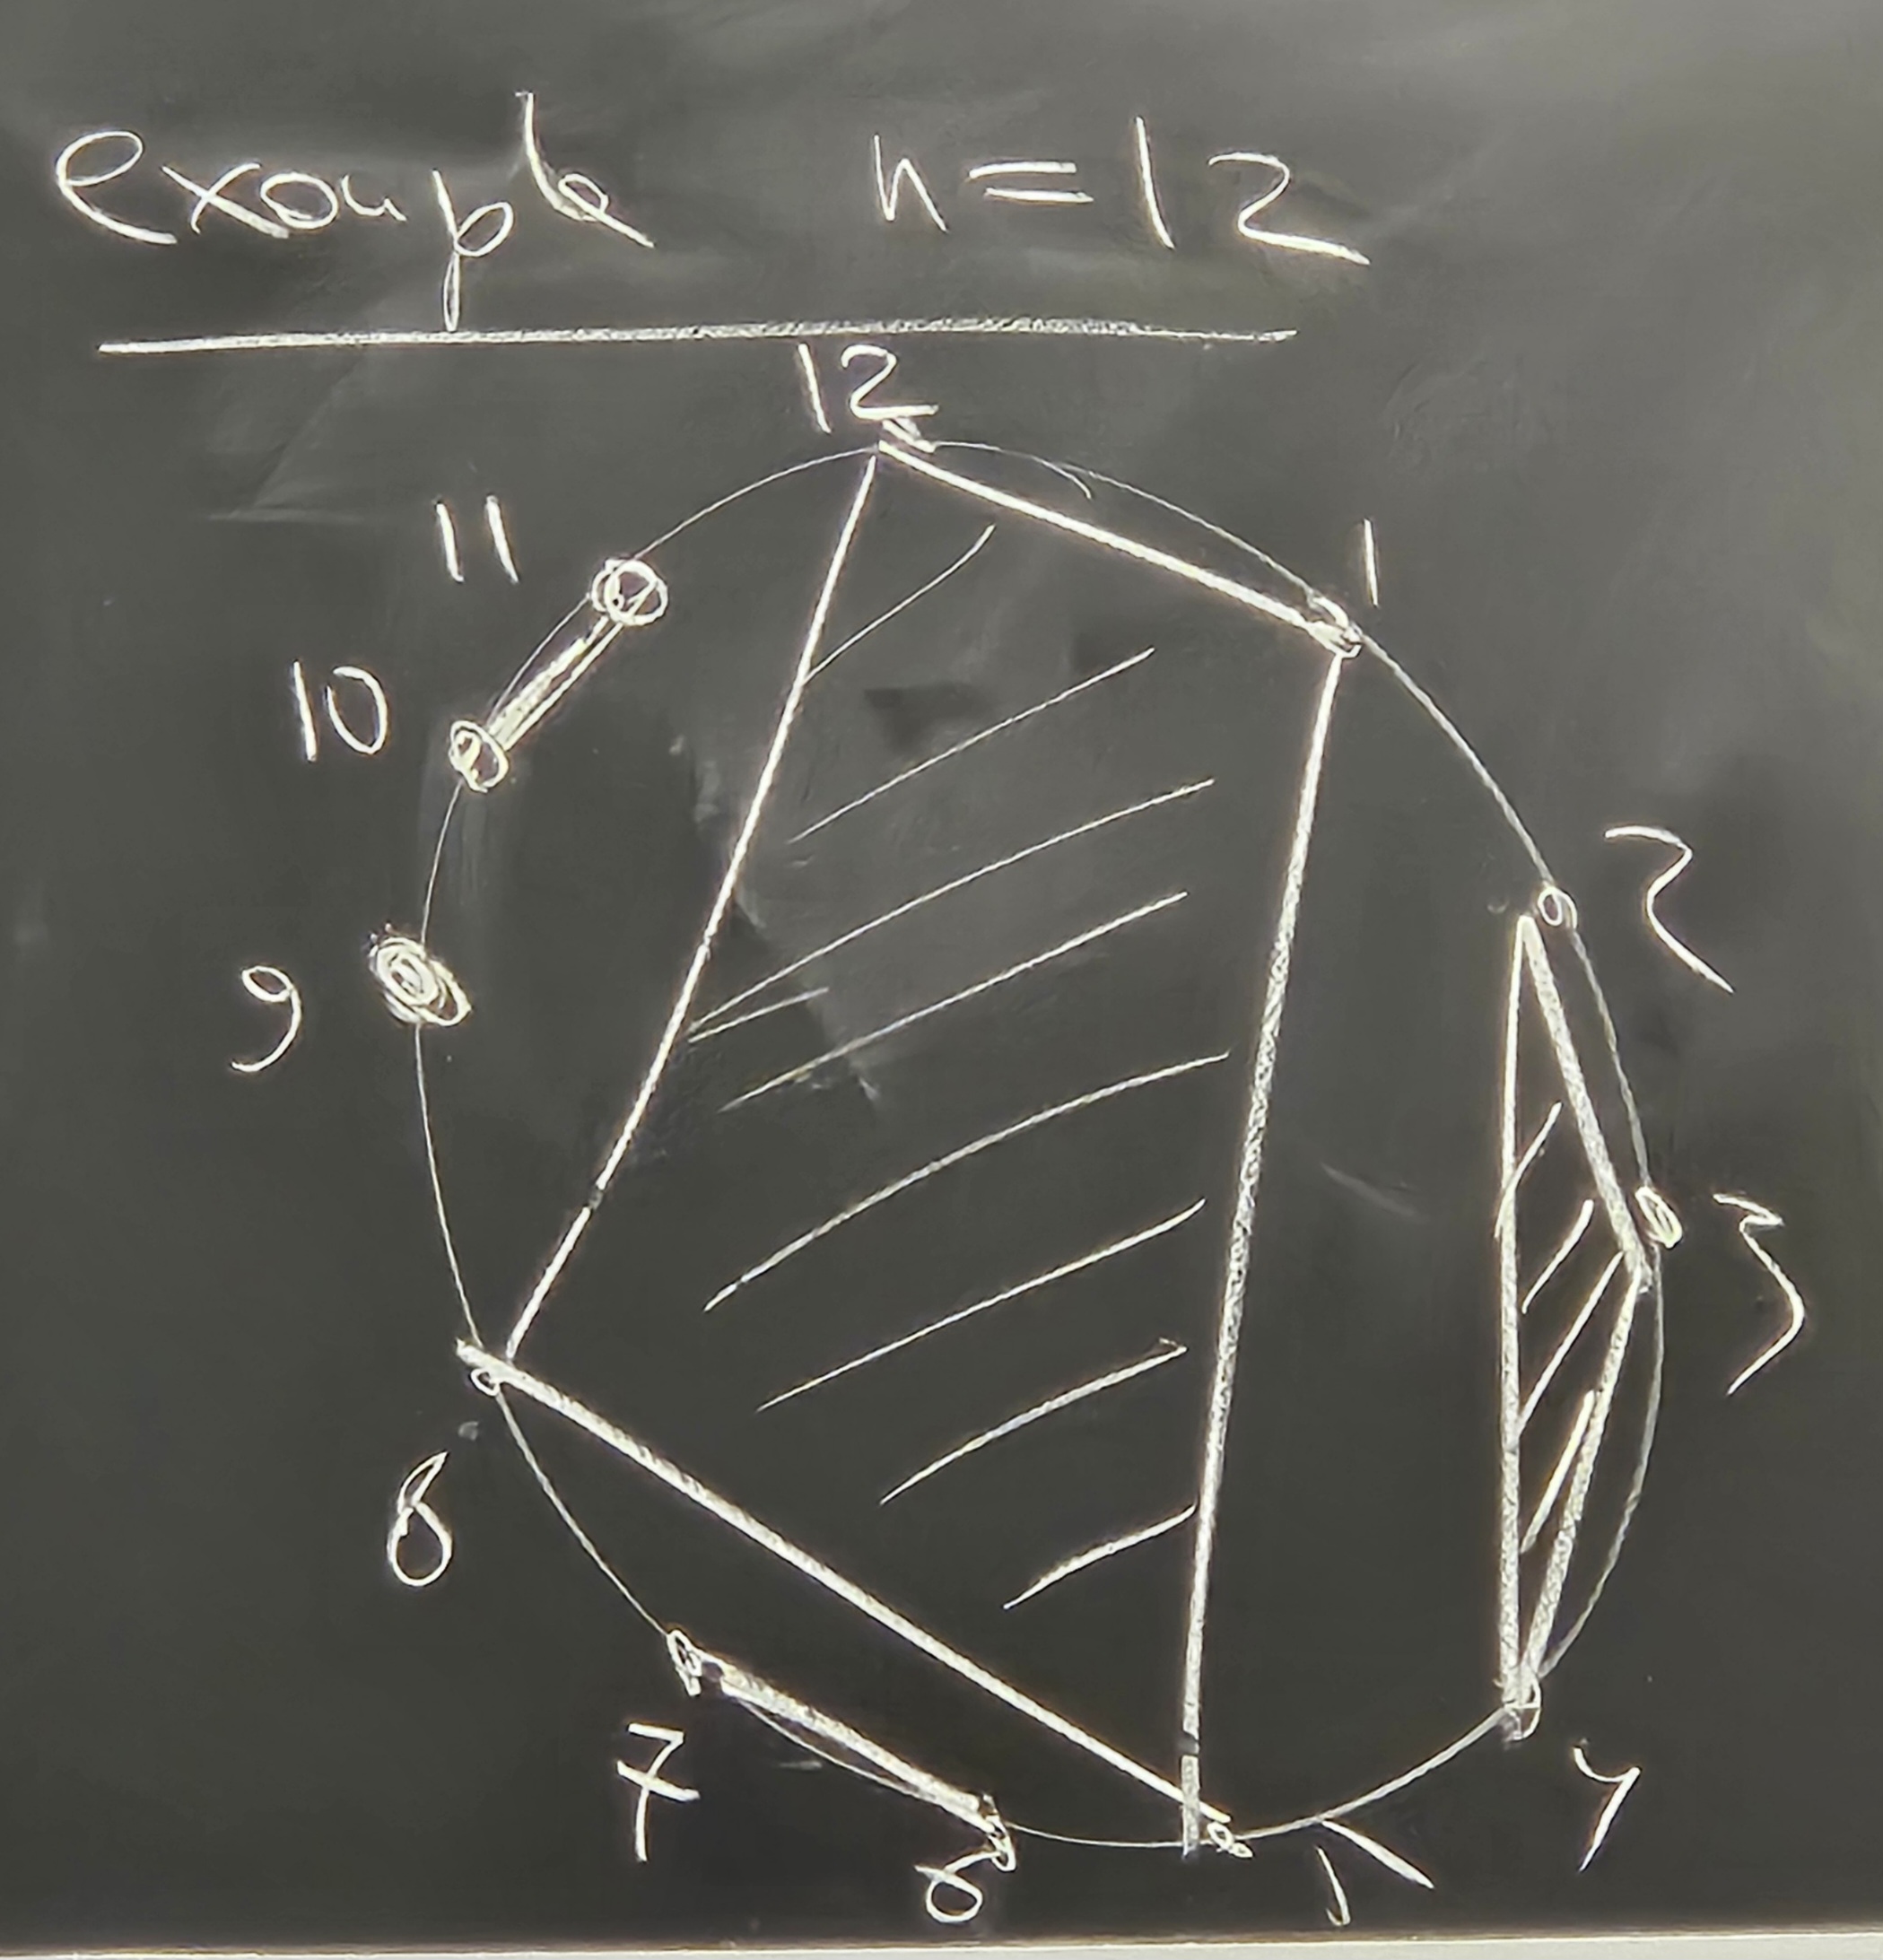 example n=12
12
11
1
10
2
9
3
8
7
4
6
5